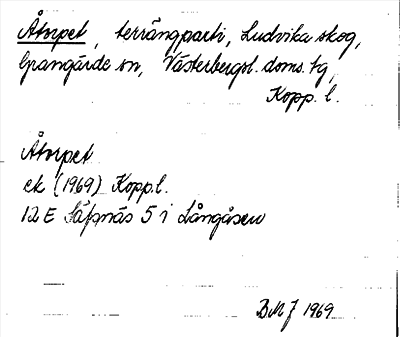 Åtorpet, terrängparti, Ludvika skog,
Grangärde sn, Västerbergsl. doms. tg,
Kopp. l.
Åtorpet
ek (1969) Kopp.l.
12 E Säfsnäs 5 i Långåsen
BMJ 1969